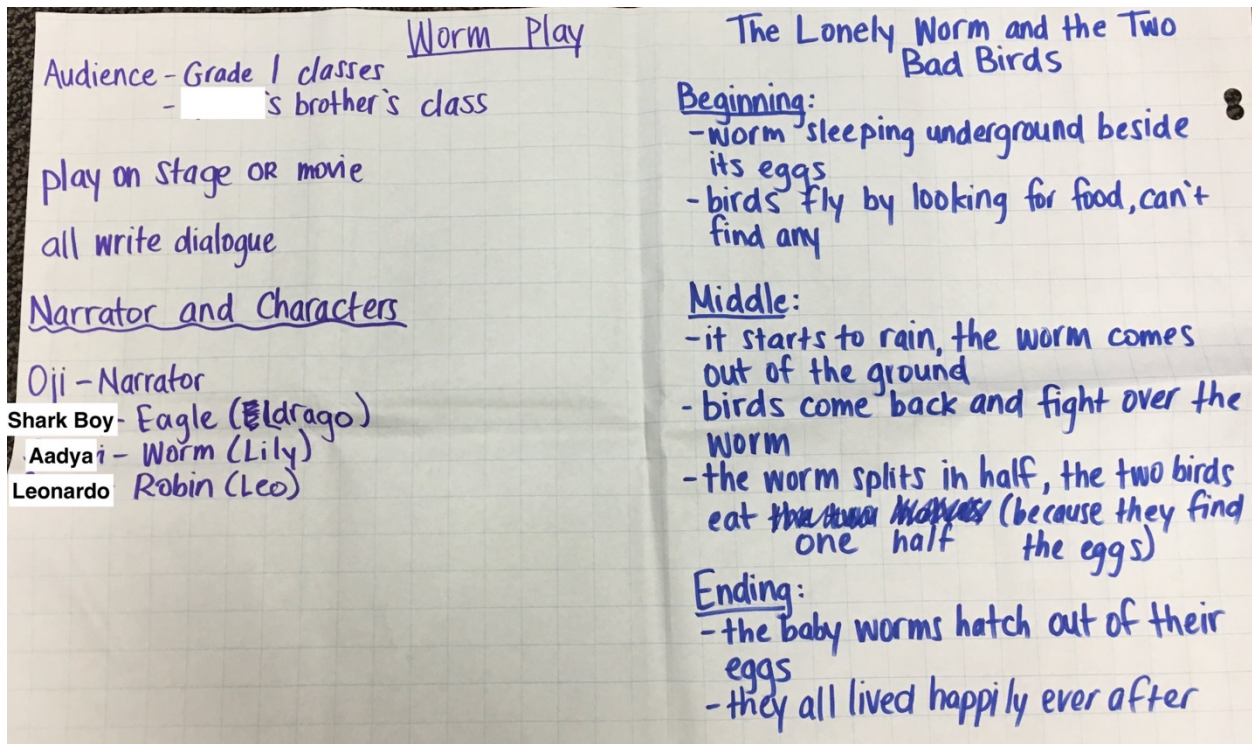 Worm Play
Audience - Grade 1 classes
- 's brother's class
play on stage OR movie
all write dialogue
Narrator and Characters
Oji - Narrator
Shark Boy - Eagle (Eldrago)
Aadya i - Worm (Lily)
Leonardo Robin (Leo)
The Lonely Worm and the Two
Bad Birds
Beginning:
- worm sleeping underground beside
its eggs
- birds fly by looking for food, can't
find any
Middle:
- it starts to rain, the worm comes
out of the ground
- birds come back and fight over the
worm
- the worm splits in half, the two birds
eat (because they find
one half the eggs)
Ending:
- the baby worms hatch out of their
eggs
- they all lived happily ever after